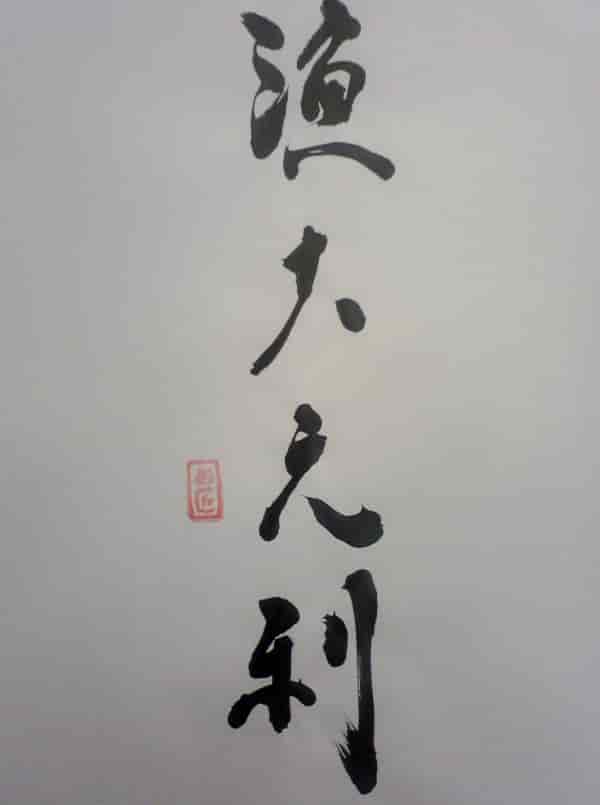 漁夫之利